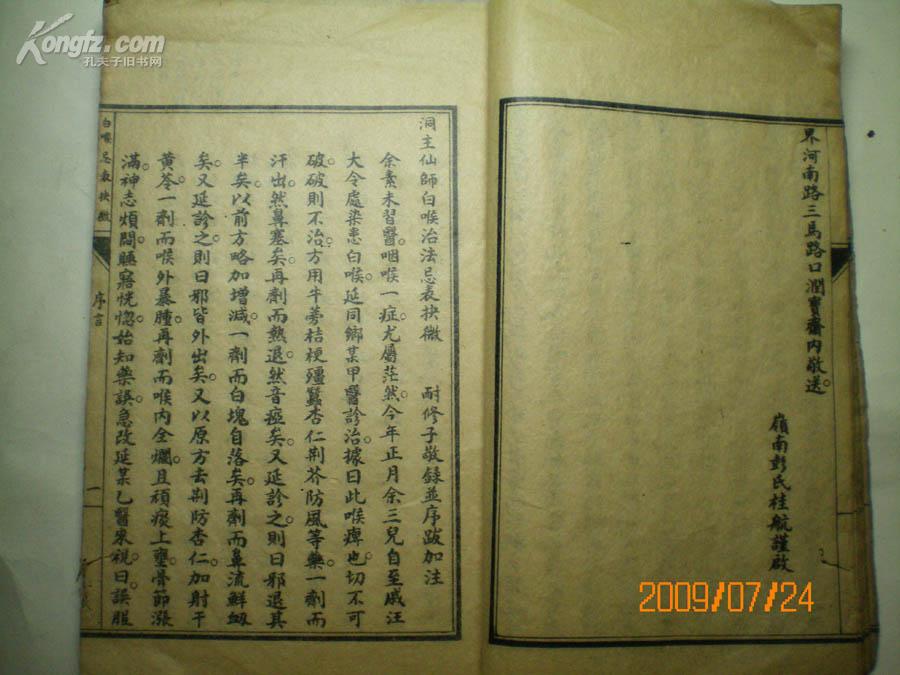 Kongfz.com
孔夫子旧书网
界河南路三馬路口潤寶齋內敬送。
嶺南彭氏桂航謹啟
洞主仙師白喉治法忌表抉微 耐修子敬錄並序跋加注
余素未習醫。咽喉一症。尤屬茫然。今年正月余三兒自至戚汪
大令處染患白喉。延同鄉某甲醫診治。據曰此喉痺也。切不可
破。破則不治。方用牛蒡桔梗殭蠶杏仁荆芥防風等藥。一劑而
汗出。然鼻塞矣。再劑而熱退。然音瘂矣。又延診之。則曰邪退其
半矣。以前方略加增減。一劑而白塊自落矣。再劑而鼻流鮮血
矣。又延診之。則曰邪皆外出矣。又以原方去荆防杏仁。加射干
黄芩。一劑而喉外暴腫。再劑而喉內全爛。且頑痰上壅。骨節漲
滿。神志煩悶。睡寤恍惚。始知藥誤。急改延某乙醫來視。曰。誤服
白喉忌表抉微
序言
一
2009/07/24